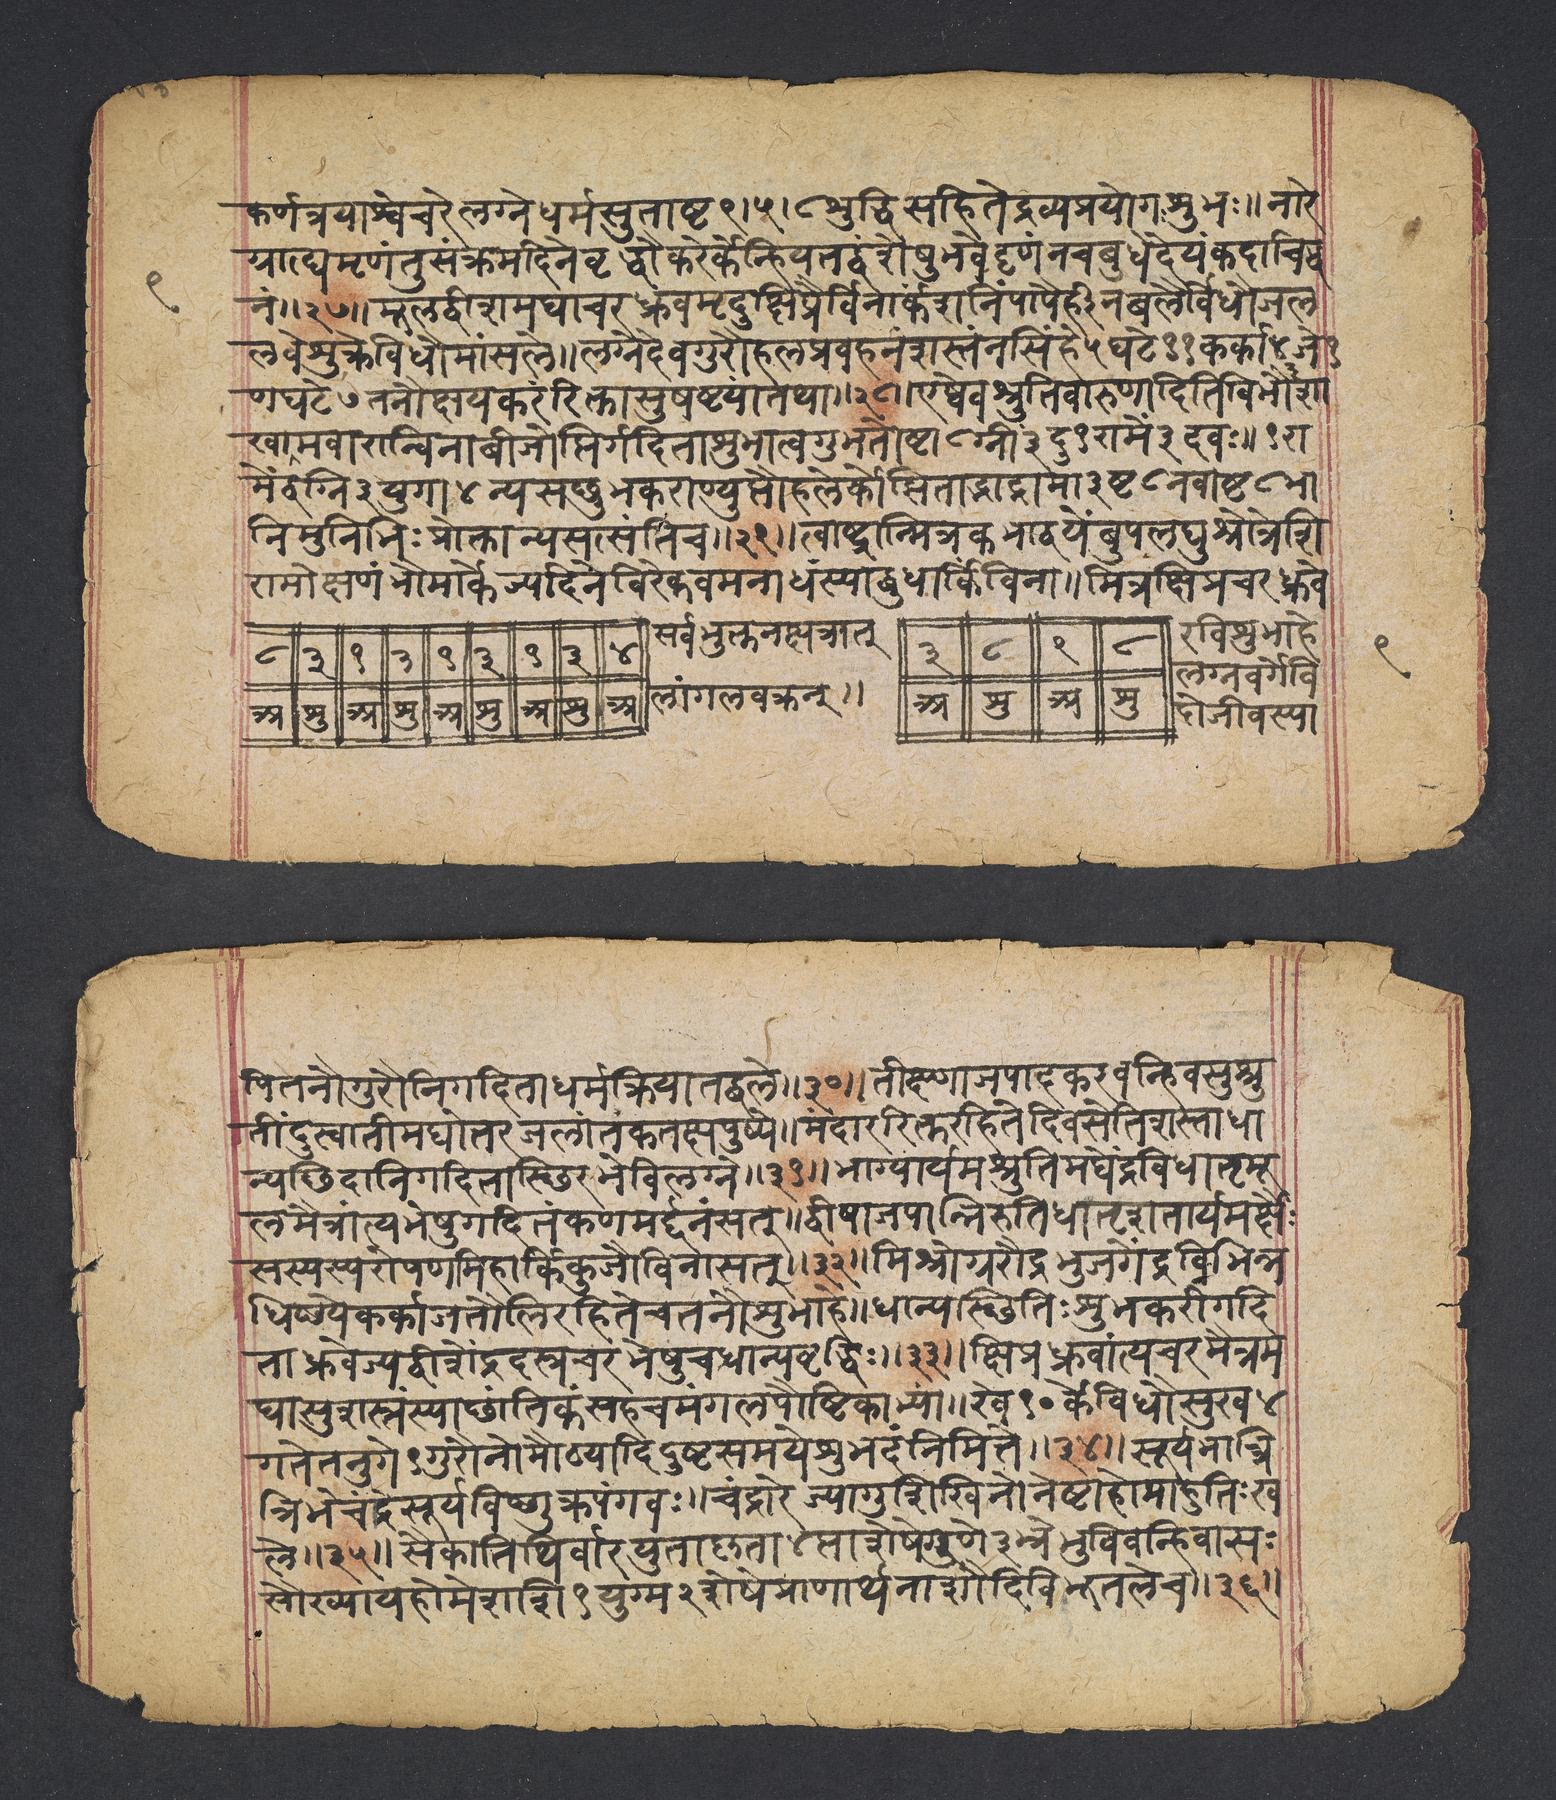 कर्णत्रयाश्वेचरेलग्नेधर्मसुताष्ट९।५।८शुद्धिसहितेद्रव्यप्रयोगःशुभः॥नारे
ग्राह्येमृणंतुसंक्रमदिनेवृद्धौकरेर्केन्हियत्तद्वंशेषुभवेदृणंनचबुधेदेयंकदाचिद्ध
नं॥२७॥मूलद्वीशमघाचरध्रुवमृदुक्षिप्रैर्विनार्कंशनिंपापैर्हीनबलैर्विधौजल
लवेशुक्रेविधौमांसले॥लग्नेदेवगुरौहलप्रवहनंशस्तंनसिंहे५घटे११कर्का४जे१
णघटे७तनौक्षयकरंरिक्तासुषष्ट्यांतथा॥२८॥एष्वेवश्रुतिवारुणादितिविभौशा
खामवारान्विनाबीजोप्तिर्गदिताशुभात्वगुभतोष्टा८ग्नीं३दु१रामें३दवः॥१रा
में३द्वग्नि३युगा४न्यसच्छुभकराण्युप्तौहलेर्कोज्झिताद्भाद्रामा३ष्ट८नवाष्ट८भा
निमुनिभिःप्रोक्तान्यसत्संतिच॥२९॥त्वाष्ट्रान्मित्रकभाद्वयेंबुपलघुश्रोत्रेशि
रामोक्षणंभौमार्केज्यदिनेविरेकवमनाद्यंस्याद्बुधार्किंविना॥मित्रक्षिप्रचरध्रुवे
८ ३ १ ३ १ ३ १ ३ ४ सर्वभुक्तनक्षत्रात् ३ ८ ९ ८ रविशुभाहे
९ लग्नवर्गेवि ९
अ शु अ शु अ शु अ शु अ लांगलचक्रम्॥ अ शु अ शु दोजीवस्या
पितनौगुरौनिगदिताधर्मक्रियातद्बले॥३०॥तीक्ष्णाजपादकरवन्हिवसुश्रु
तींदुस्वातीमघोत्तरजलांतकतक्षपुष्ये॥मंदाररिक्तरहितेदिवसेतिशस्ताधा
न्यछिदानिगदितास्छिरभेविलग्ने॥३१॥भाग्यार्यमश्रुतिमघेंद्रविधातृमू
लमैत्रांत्यभेषुगदितंकणमर्द्दनंसत्॥द्वीषाजपान्निरुतिधातृशतार्यमर्क्षेः
सस्यस्यरोपणमिहार्किकुजौविनासत्॥३२॥मिश्रोग्ररौद्रभुजगेंद्रविभिन्न
धिष्ण्येकर्काजतौलिरहितेचतनौशुभाहे॥धान्यस्छितिःशुभकरीगदि
ताध्रुवेज्यद्वीशेंद्रदस्रचरभेषुचधान्यवृद्धिः॥३३॥क्षिप्रध्रुवांत्यचरमैत्रम
घासुशस्तंस्याछांतिकंसहचमंगलपौष्टिकाभ्यां॥खे१०र्केविधौसुख४
गतेतनुगे१गुरौनोमौढ्यादिदुष्टसमयेशुभदंनिमित्ते॥३४॥सूर्यभात्रि
त्रिभेचंद्रेसूर्यविच्छुक्रपंगवः॥चंद्रारेज्यागुशिखिनोनेष्टाहोमाहुतिःख
ले॥३५॥सैकातिथिर्वारयुताछता४प्ताशेषेगुणे३भ्रेभुविवन्हिवासः
सौख्यायहोमेशशि१युग्म२शेषेप्राणार्थनाशौदिविभूतलेच॥३६॥